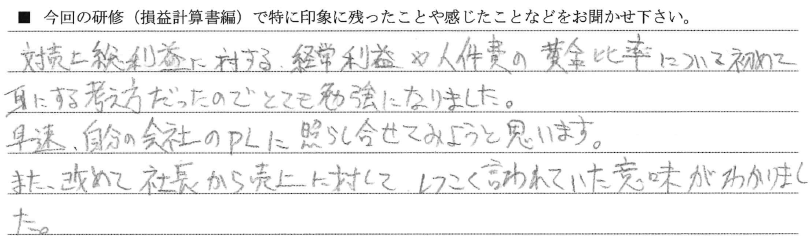 ■ 今回の研修（損益計算書編）で特に印象に残ったことや感じたことなどをお聞かせ下さい。
対売上総利益に対する、経常利益や人件費の黄金比率について初めて
耳にする考え方だったのでとても勉強になりました。
早速、自分の会社のPLに照らし合せてみようと思います。
また、改めて社長から売上に対してしつこく言われていた意味がわかりまし
た。